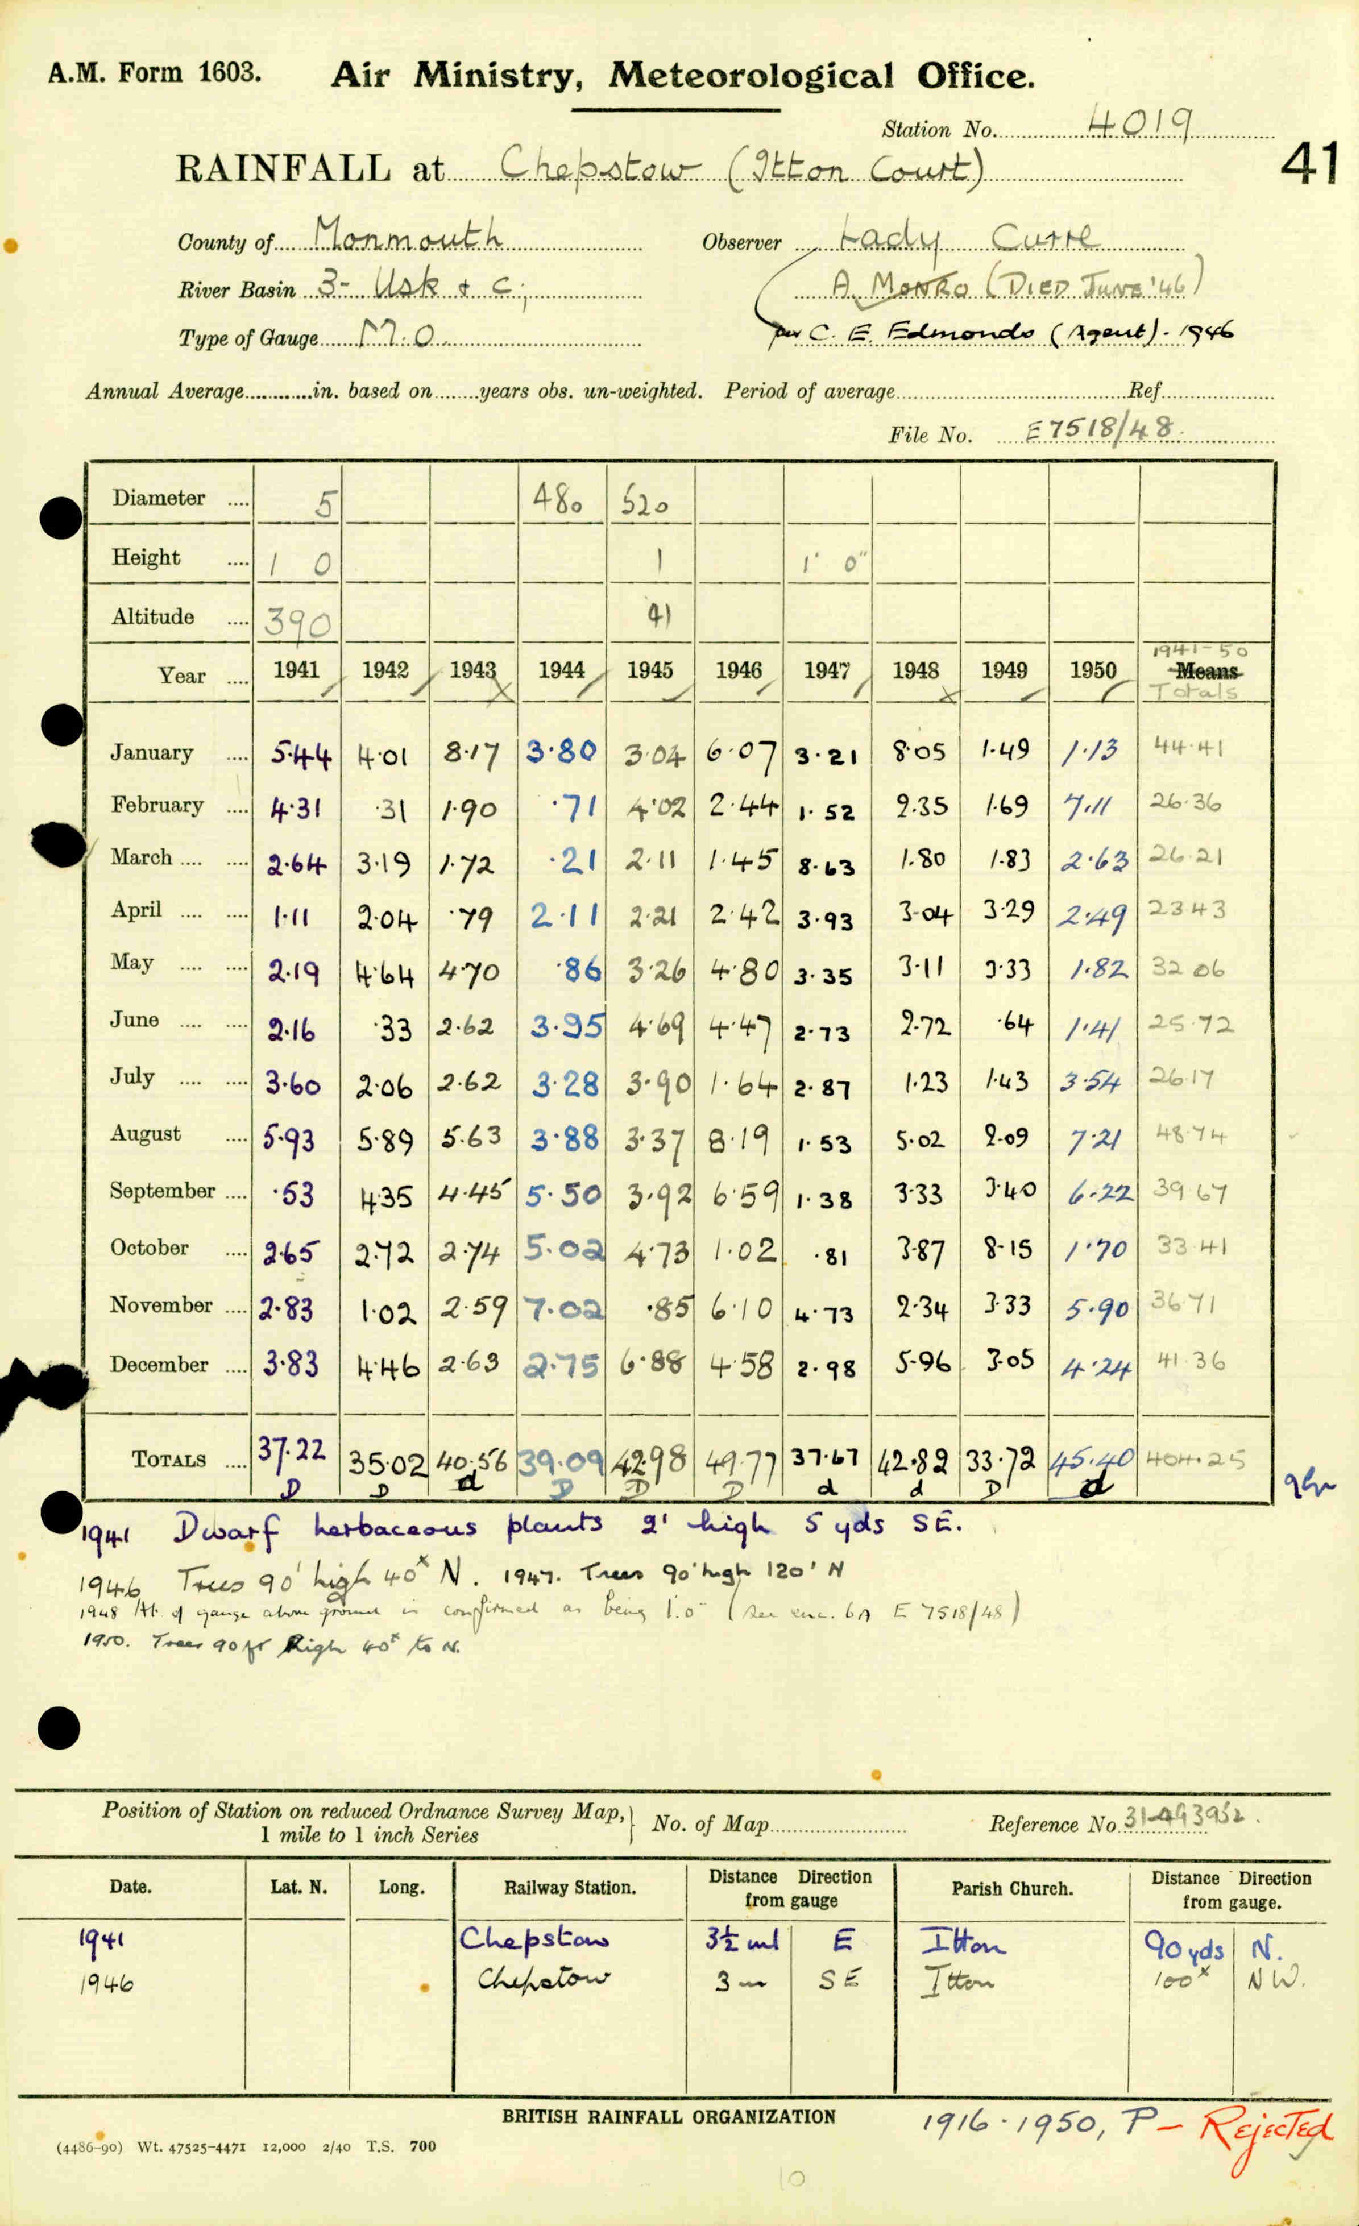 A.M. Form 1603. Air Ministry, Meteorological Office.
Station No. 4019
41
RAINFALL at Chepstow (Itton Court)
County of Monmouth Observer Lady Curre
River Basin 3- Usk & c; A. MONRO (DIED JUNE '46)
Type of Gauge M.O per C. E. Edmonds (Agent) - 1946
Annual Average in. based on years obs. un-weighted. Period of average Ref
File No. E7518/48.
Diameter 5 480 520
Height 1 0 1 1' 0"
Altitude 390 41
1941-50
Year 1941 1942 1943 1944 1945 1946 1947 1948 1949 1950 Means
Totals
January 5.44 4.01 8.17 3.80 3.04 6.07 3.21 8.05 1.49 1.13 44.41
February 4.31 .31 1.90 .71 4.02 2.44 1.52 2.35 1.69 7.11 26.36
March 2.64 3.19 1.72 .21 2.11 1.45 8.63 1.80 1.83 2.63 26.21
April 1.11 2.04 .79 2.11 2.21 2.42 3.93 3.04 3.29 2.49 23.43
May 2.19 4.64 4.70 .86 3.26 4.80 3.35 3.11 3.33 1.82 32.06
June 2.16 .33 2.62 3.95 4.69 4.47 2.73 2.72 .64 1.41 25.72
July 3.60 2.06 2.62 3.28 3.90 1.64 2.87 1.23 1.43 3.54 26.17
August 5.93 5.89 5.63 3.88 3.37 8.19 1.53 5.02 2.09 7.21 48.74
September .53 4.35 4.45 5.50 3.92 6.59 1.38 3.33 3.40 6.22 39.67
October 2.65 2.72 2.74 5.02 4.73 1.02 .81 3.87 8.15 1.70 33.41
November 2.83 1.02 2.59 7.02 .85 6.10 4.73 2.34 3.33 5.90 36.71
December 3.83 4.46 2.63 2.75 6.88 4.58 2.98 5.96 3.05 4.24 41.36
TOTALS 37.22 35.02 40.56 39.09 42.98 49.77 37.67 42.82 33.72 45.40 404.25
D D d D D D d d D d
1941 Dwarf herbaceous plants 2' high 5 yds SE.
1946 Trees 90' high 40x N. 1947. Trees 90' high 120' N
1948 Ht. of gauge above ground is confirmed as being 1'.0" (See enc. 6A E 7518/48)
1950. Trees 90 ft high 40x to N.
Position of Station on reduced Ordnance Survey Map, 1 mile to 1 inch Series No. of Map Reference No.
Date. Lat. N. Long. Railway Station. Distance Direction from gauge Parish Church. Distance Direction from gauge.
1941 Chepstow 3½ ml E Itton 90 yds N.
1946 Chepstow 3 m SE Itton 100x NW.
BRITISH RAINFALL ORGANIZATION
1916-1950, P - Rejected
(4486-90) Wt. 47525-4471 12,000 2/40 T.S. 700
10